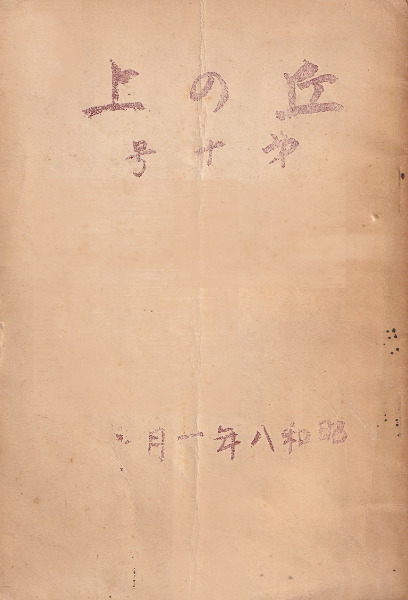 丘の上
第十号
昭和八年一月